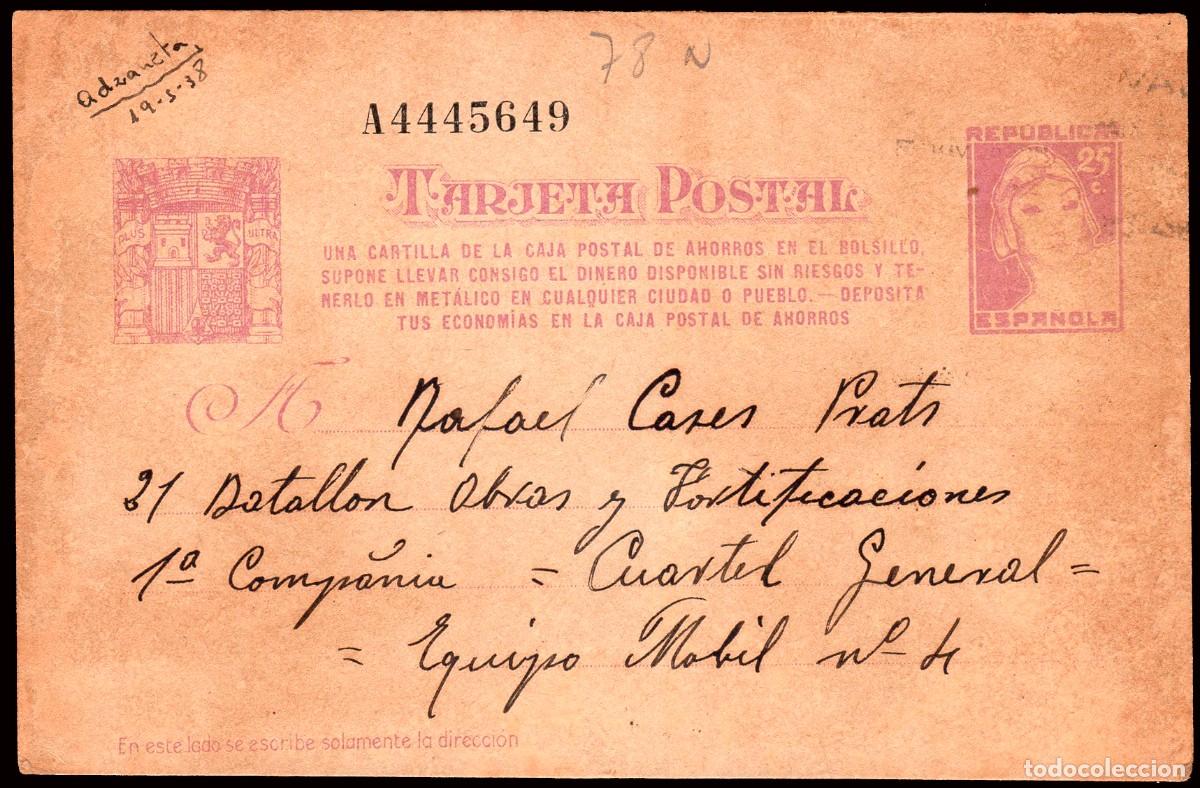 Adzaneta
19-5-38
78 N
A4445649
REPÚBLICA
25 c
ESPAÑOLA
PLUS ULTRA
TARJETA POSTAL
UNA CARTILLA DE LA CAJA POSTAL DE AHORROS EN EL BOLSILLO,
SUPONE LLEVAR CONSIGO EL DINERO DISPONIBLE SIN RIESGOS Y TE-
NERLO EN METÁLICO EN CUALQUIER CIUDAD O PUEBLO.—DEPOSITA
TUS ECONOMÍAS EN LA CAJA POSTAL DE AHORROS
A Rafael Cases Prats
31 Batallon Obras y Fortificaciones
1ª Compañia = Cuartel General =
= Equipo Mobil nº 4
En este lado se escribe solamente la dirección
todocoleccion